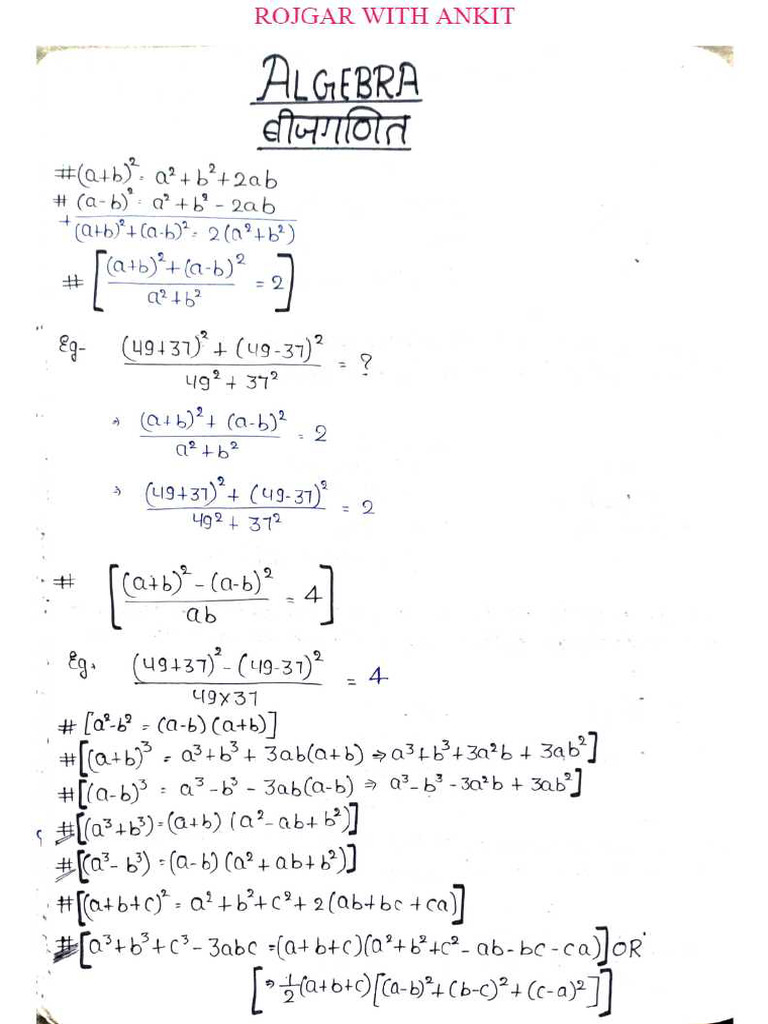 ROJGAR WITH ANKIT
ALGEBRA
बीजगणित
# (a+b)² = a²+b²+2ab
# (a-b)² = a²+b²-2ab
+ (a+b)²+(a-b)² = 2(a²+b²)
# [(a+b)²+(a-b)² / a²+b² = 2]
Eg- (49+37)²+(49-37)² / 49²+37² = ?
⇒ (a+b)²+(a-b)² / a²+b² = 2
⇒ (49+37)²+(49-37)² / 49²+37² = 2
# [(a+b)²-(a-b)² / ab = 4]
Eg. (49+37)²-(49-37)² / 49×37 = 4
# [a²-b² = (a-b)(a+b)]
# [(a+b)³ = a³+b³+3ab(a+b) ⇒ a³+b³+3a²b+3ab²]
# [(a-b)³ = a³-b³-3ab(a-b) ⇒ a³-b³-3a²b+3ab²]
# [(a³+b³) = (a+b)(a²-ab+b²)]
# [(a³-b³) = (a-b)(a²+ab+b²)]
# [(a+b+c)² = a²+b²+c²+2(ab+bc+ca)]
# [a³+b³+c³-3abc = (a+b+c)(a²+b²+c²-ab-bc-ca)] OR
[⇒ ½(a+b+c)[(a-b)²+(b-c)²+(c-a)²]]